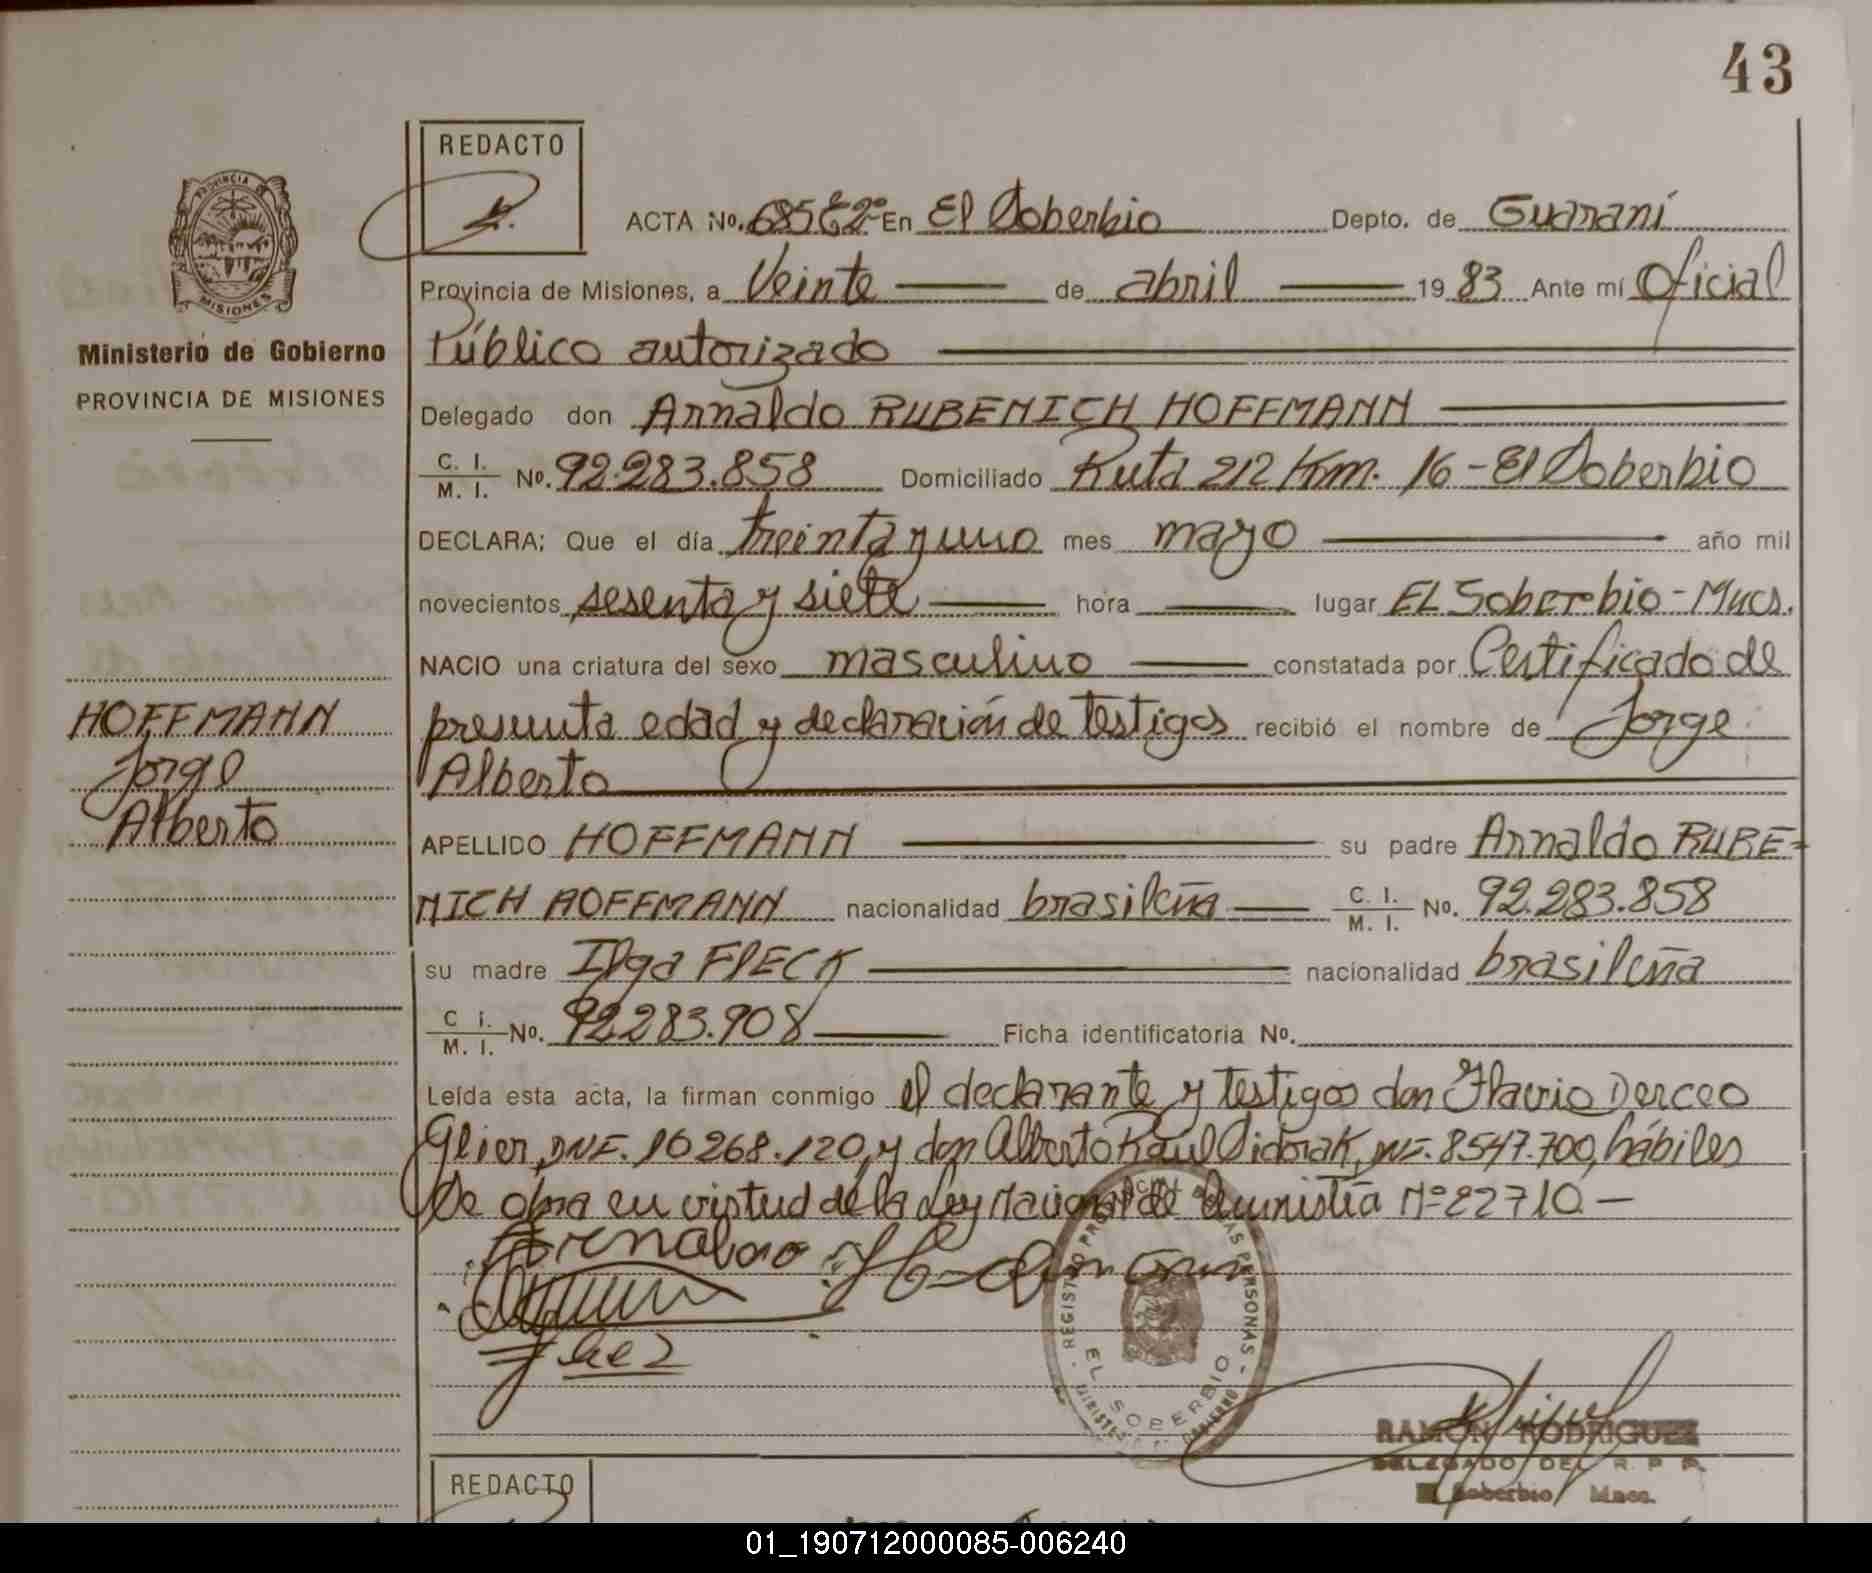 43
REDACTO
ACTA No. 685 E2º En El Soberbio Depto. de Guaraní
Provincia de Misiones, a Veinte de abril 1983 Ante mí Oficial
Público autorizado
Delegado don Arnaldo RUBENICH HOFFMANN
C. I. M. I. No. 92.283.858 Domiciliado Ruta 212 Km. 16 - El Soberbio
DECLARA; Que el día treinta y uno mes mayo año mil
novecientos sesenta y siete hora lugar EL Soberbio - Mnes.
NACIO una criatura del sexo masculino constatada por Certificado de
presunta edad y declaración de testigos recibió el nombre de Jorge
Alberto
APELLIDO HOFFMANN su padre Arnaldo RUBE-
NICH HOFFMANN nacionalidad brasileña C. I. M. I. No. 92.283.858
su madre Ilga FLECK nacionalidad brasileña
C I. M. I. No. 92.283.908 Ficha identificatoria No.
Leída esta acta, la firman conmigo el declarante y testigos don Flavio Derceo
Glier, DNI. 16268.120, y don Alberto Raul Sidorak, DNI. 8547.700, hábiles
Se obra en virtud de la Ley Nacional de Amnistía Nº 22710 -
Arnaldo
PROVINCIA DE MISIONES
Ministerio de Gobierno
PROVINCIA DE MISIONES
HOFFMANN
Jorge
Alberto
REGISTRO PROVINCIAL DE LAS PERSONAS
EL SOBERBIO
MINISTERIO DE GOBIERNO
RAMON RODRIGUEZ
DELEGADO DEL R. P. P.
Soberbio Mnes.
REDACTO
01_190712000085-006240